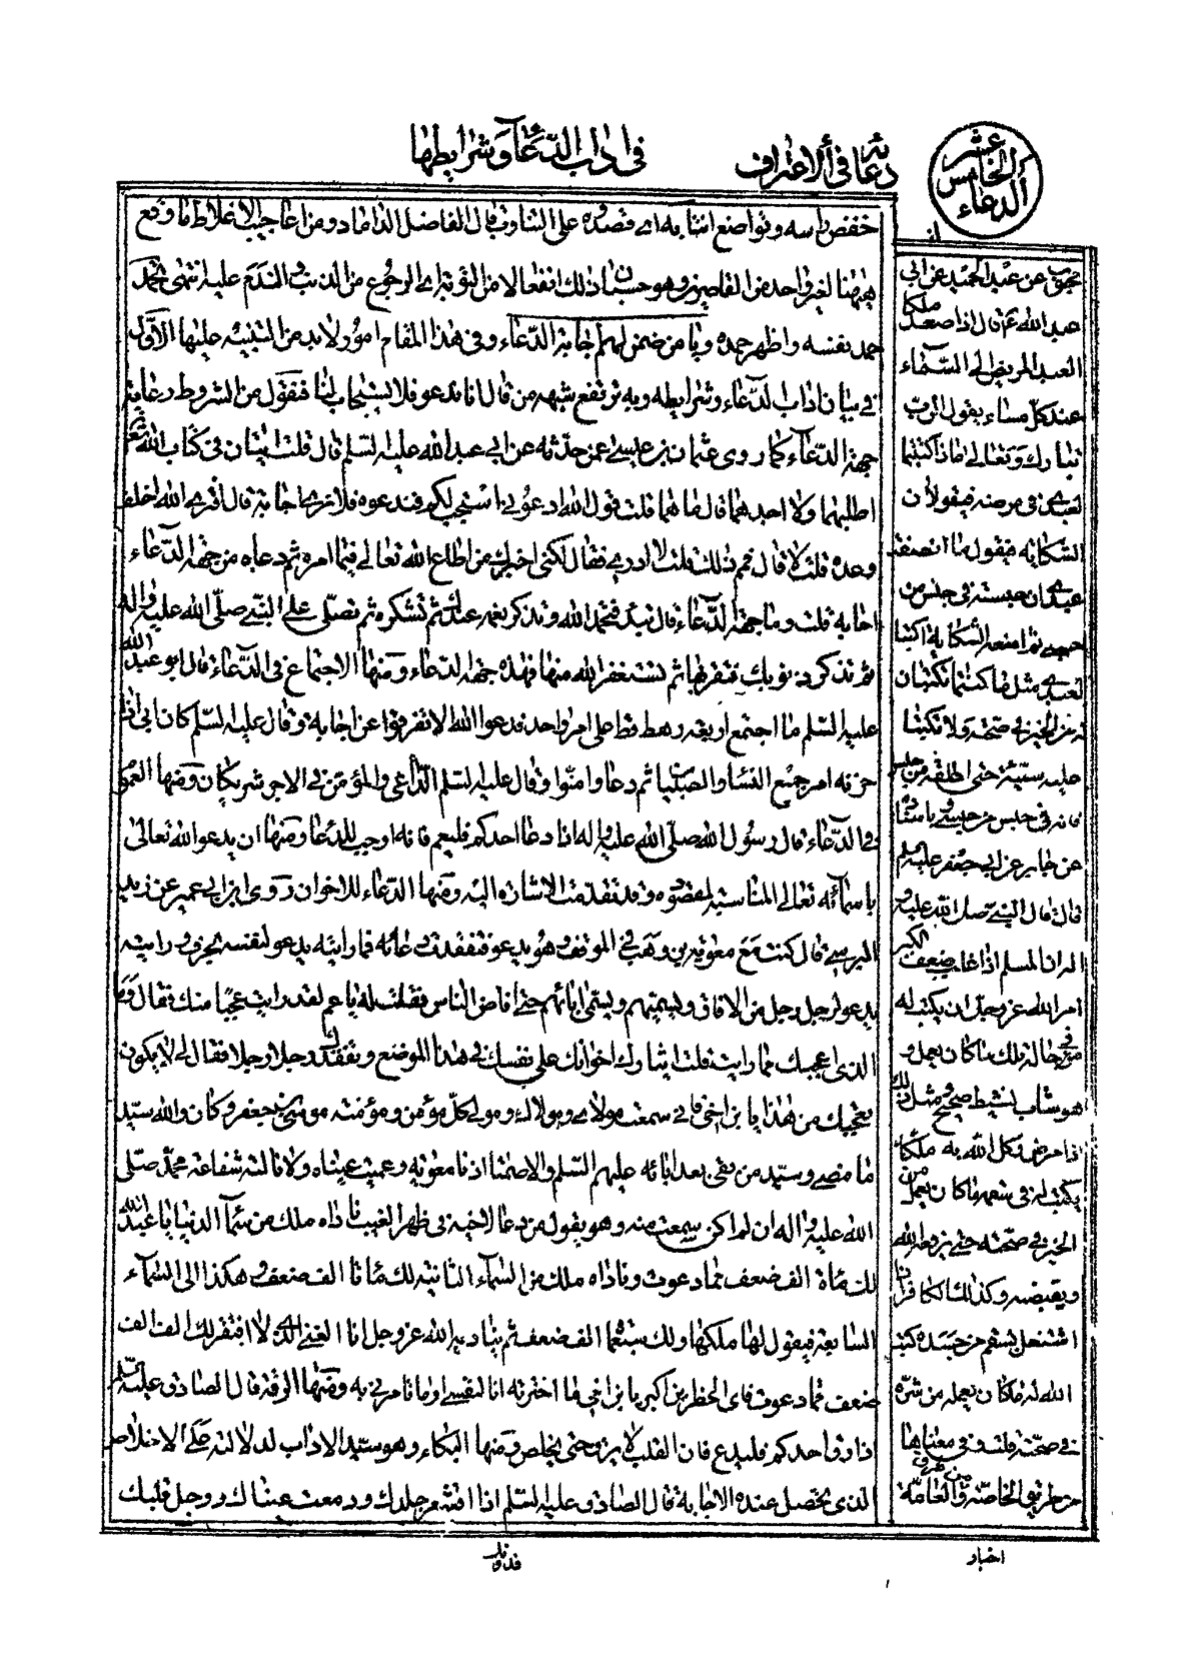 في اداب الدّعآء وشرايطها
دعائه في الاعتراف
الدعاء الخامس عشر
خفض راسه وتواضع انتابه اى قصده على التناوب قال الفاضل الداماد ومن اعاجيب الاغلاط ما وقع
ههنا لغير واحد من القاصرين وهو حسبان ذلك انفعالا من التوبة اى الرجوع من الذنب والندم عليه انتهى تحمّد
حمد نفسه واظهر حمده ويا من ضمن لهم اجابة الدّعاء وفي هذا المقام امور لا بد من التنبيه عليها الأوّل
في بيان اداب الدّعاء وشرايطه وبه ترتفع شبهة من قال انا ندعو فلا يستجاب لنا فنقول من الشروط رعاية
جهة الدّعاء كما روى عثمان بن عيسى عمن حدّثه عن ابي عبد الله عليه السّلم قال قلت ايتان في كتاب الله
اطلبهما ولا اجدهما قال ما هما قلت قول الله ادعوني استجب لكم فندعوه فلا نرى اجابة قال افترى الله اخلف
وعده قلت لا قال فمم ذلك قلت لا ادرى فقال لكنى اخبرك من اطاع الله تعالى فيما امره ثم دعاه من جهة الدّعاء
اجابه قلت وما جهة الدّعاء قال تبدء فتحمد الله وتذكر نعمه عندك ثم تشكره ثم تصلّى على النبي صلّى الله عليه واله
ثم تذكر ذنوبك فتقر بها ثم تستغفر الله منها فهذه جهة الدعاء ومنها الاجتماع في الدّعاء قال ابو عبد الله
عليه السّلم ما اجتمع اربعة رهط قط على امر واحد فدعوا الله الا تفرقوا عن اجابة وقال عليه السّلم كان ابي اذا
حزنه امر جمع النساء والصبيان ثم دعا وامّنوا وقال عليه السلم الدّاعى والمؤمّن في الاجر شريكان ومنها العموم
في الدّعاء قال رسول الله صلّى الله عليه واله اذا دعا احدكم فليعم فانه اوجب للدعاء ومنها ان يدعو الله تعالى
باسمآئه تعالى المناسبة لمقصوده وقد تقدمت الاشارة اليه ومنها الدّعاء للاخوان روى ابن ابي عمير عن زيد
النرسى قال كنت مع معوية بن وهب في الموقف وهو يدعو فتفقدت دعائه فما رايته يدعو لنفسه بحرف ورايته
يدعو لرجل رجل من الافاق ويسميهم ويسمى ابائهم حتى افاض الناس فقلت له يا عم لقد رايت عجبا منك فقال وما
الذى اعجبك مما رايت قلت ايثارك اخوانك على نفسك في هذا الموضع وتفقدك رجلا رجلا فقال لى لا يكون
تعجبك من هذا يا بن اخى فاني سمعت مولاى ومولاك ومولى كلّ مؤمن ومؤمنة موسى بن جعفر وكان والله سيّد
ما مضى وسيّد من بقى بعد ابائه عليهم السّلم والا صمتا اذنا معوية وعميت عيناه ولا نالته شفاعة محمّد صلّى
الله عليه واله ان لم اكن سمعت منه وهو يقول من دعا لاخيه في ظهر الغيب ناداه ملك من سمآء الدنيا يا عبد الله
لك مأة الف ضعف مما دعوت وناداه ملك من السّمآء الثانية لك مأتا الف ضعف وهكذا الى السّمآء
السّابعة فيقول لها ملكها ولك سبعمأة الف ضعف ثم يناديه الله عز وجل انا الغنى الذى لا افتقر لك الف الف
ضعف مما دعوت فاى الخطرين اكبر يا بن اخى ما اخترته انا لنفسى او ما تامرنى به ومنها الرقة قال الصادق عليه السلم
اذا رق احدكم فليدع فان القلب لا يرق حتى يخلص ومنها البكاء وهو سيّد الاداب لدلالته على الاخلاص
الذى يحصل عنده الاجابة قال الصادق عليه السّلم اذا اقشعر جلدك ودمعت عيناك ووجل قلبك
فدونك
محبوب عن عبد الحميد عن ابي
عبد الله ع قال اذا صعد ملكا
العبد المريض الى السّمآء
عند كلّ مساء يقول الرب
تبارك وتعالى ماذا كتبتما
لعبدى في مرضه فيقولان
الشكاية فيقول ما انصفت
عبدى ان حبسته في حبس من
حبسى ثم امنعه الشكاية اكتبا
لعبدى مثل ما كنتما تكتبان
له من الخير في صحّته ولا تكتبا
عليه سيّئة حتى اطلقه من حبسى
فانه في حبس من حبسى وباسناده
عن جابر عن ابي جعفر عليه السلم
قال قال النبي صلى الله عليه و
اله ان المسلم اذا غلبه ضعف الكبر
امر الله عز وجل ان يكتب له
في حاله تلك ما كان يعمل و
هو شاب نشيط صحيح ومثل ذلك
اذا مرض وكل الله به ملكا
يكتب له في سقمه ما كان يعمل من
الخير في صحّته حتى يرفعه الله
ويقبضه وكذلك الكافر اذا
اشتغل بسقم من جسده كتب
الله له ما كان يعمله من شرّه
في صحّته قلت وفي معناها
من طريق الخاصّة والعامّة
اخبار